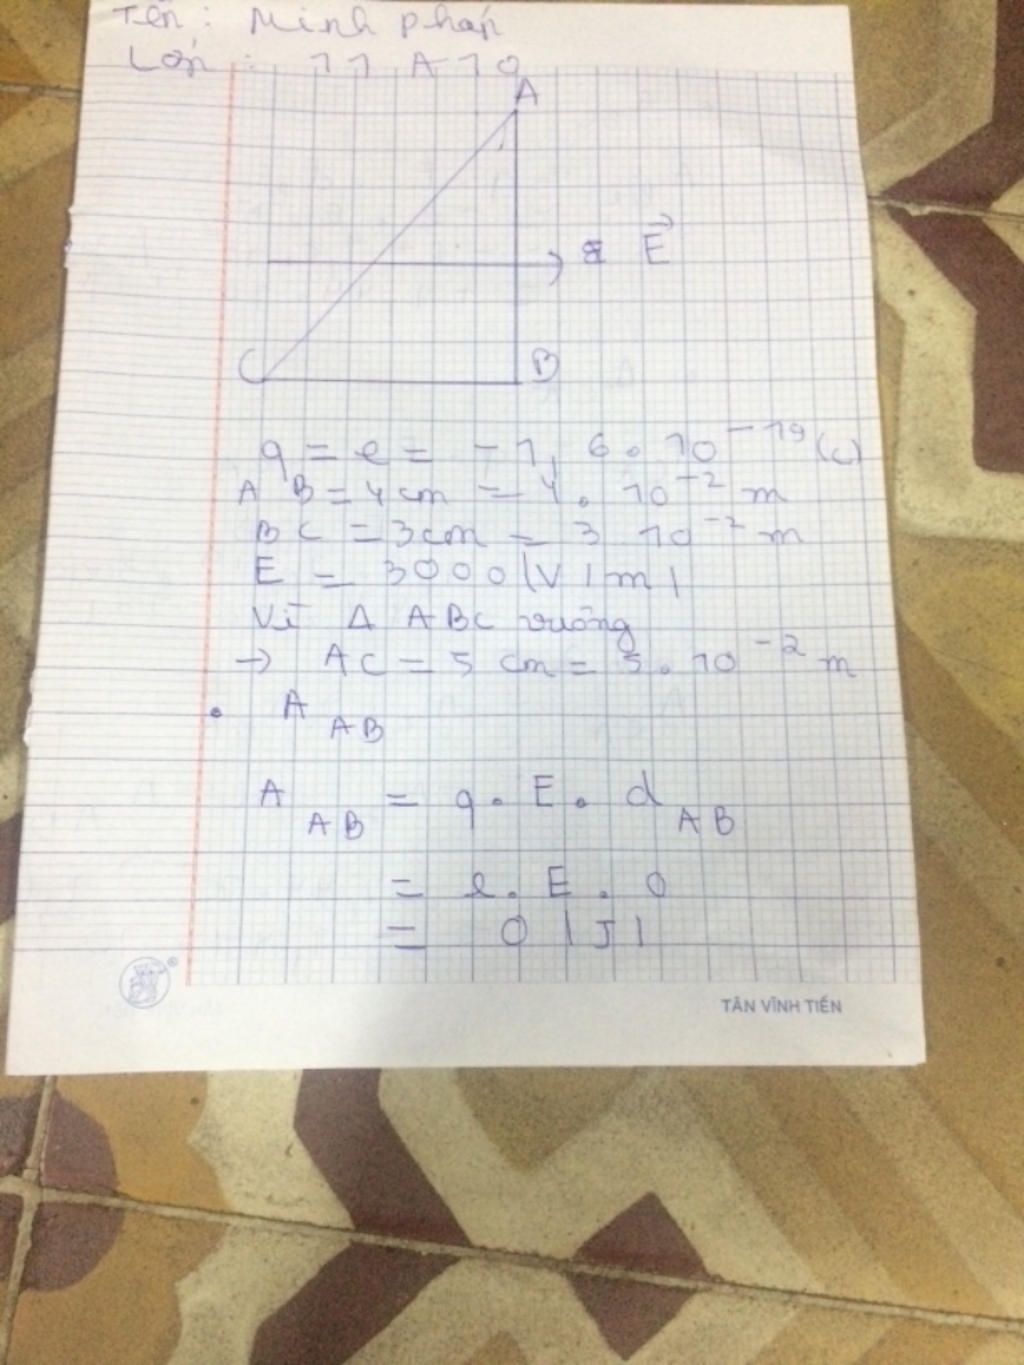 Tên : Minh pháp
Lớp : 11 A 10
A
E
C
B
q = e = -1,6.10⁻¹⁹ (c)
AB = 4cm = 4.10⁻² m
BC = 3cm = 3 10⁻² m
E = 3000 (V/m)
Vì Δ ABC vuông
→ AC = 5 cm = 5.10⁻² m
• A AB
A AB = q.E.d AB
= e.E.0
= 0 (J)
TÂN VĨNH TIẾN